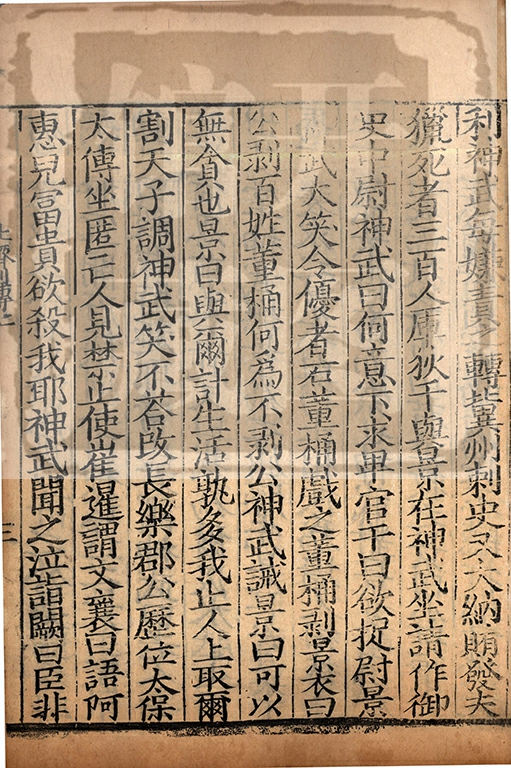 利神武每嫌責之轉冀州刺史又大納賄發夫
獵死者三百人庫狄干與景在神武坐請作御
史中尉神武曰何意下求卑官干曰欲捉尉景
武大笑令優者石董桶戲之董桶剥景衣曰
公剥百姓董桶何為不剥公神武誡景曰可以
無貪也景曰與爾計生活孰多我止人上取爾
割天子調神武笑不荅改長樂郡公歷位太保
太傅坐匿亡人見禁止使崔暹謂文襄曰語阿
惠兒富貴欲殺我耶神武聞之泣詣闕曰臣非